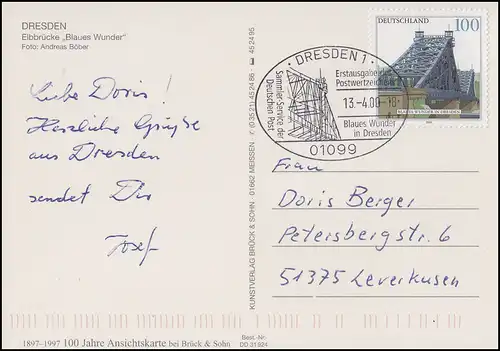 DRESDEN
Elbbrücke „Blaues Wunder"
Foto: Andreas Böber
Liebe Doris!
Herzliche Grüße
aus Dresden
sendet Dir
Josef
KUNSTVERLAG BRÜCK & SOHN · 01662 MEISSEN · ✆ (0 35 21) 45 24 86 · 45 24 95
DEUTSCHLAND 100
BLAUES WUNDER IN DRESDEN
· DRESDEN 1 ·
Erstausgabe der
Postwertzeichen
13.-4.00-10
Blaues Wunder
in Dresden
Sammler-Service der
Deutschen Post
01099
Frau
Doris Berger
Petersbergstr. 6
51375 Leverkusen
1897–1997 100 Jahre Ansichtskarte bei Brück & Sohn
Best.-Nr.
DD 21924